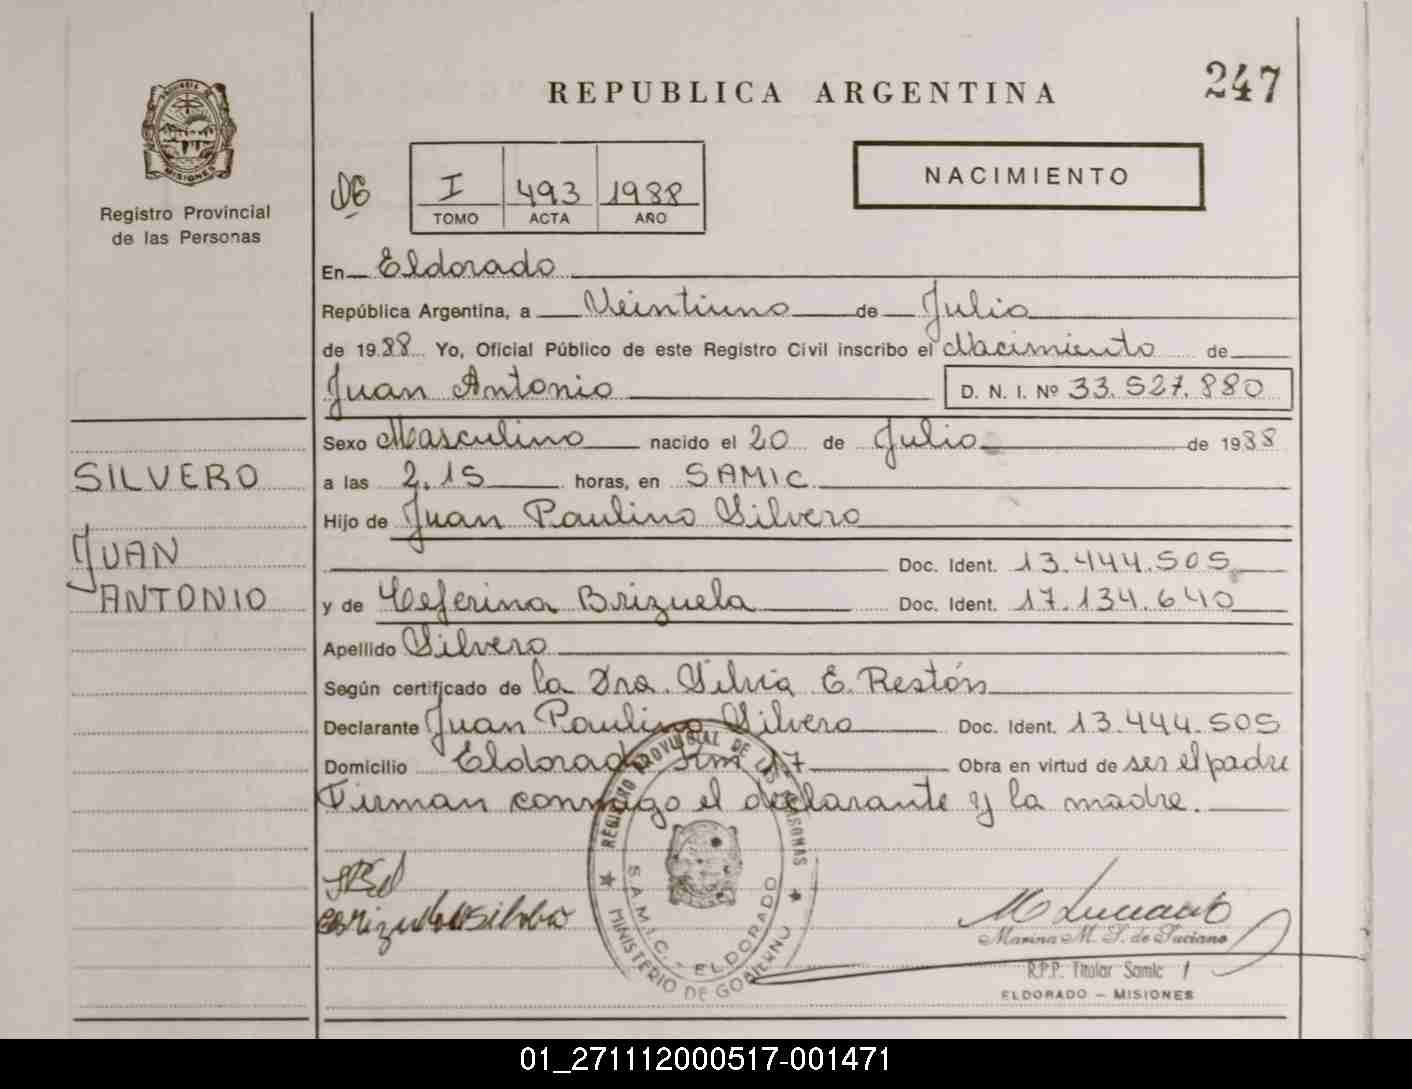 REPUBLICA ARGENTINA
247
Registro Provincial
de las Personas
I 493 1988
TOMO ACTA AÑO
NACIMIENTO
En Eldorado
República Argentina, a Veintiuno de Julio
de 1988 Yo, Oficial Público de este Registro Civil inscribo el Nacimiento de
Juan Antonio D. N. I. Nº 33.527.880
Sexo Masculino nacido el 20 de Julio de 1988
a las 2.15 horas, en SAMIC
Hijo de Juan Paulino Silvero
Doc. Ident. 13.444.505
y de Ceferina Brizuela Doc. Ident. 17.134.640
Apellido Silvero
Según certificado de la Dra. Silvia E. Restón
Declarante Juan Paulino Silvero Doc. Ident. 13.444.505
Domicilio Eldorado km 17 Obra en virtud de ser el padre
Firman conmigo el declarante y la madre.
SILVERO
JUAN
ANTONIO
REGISTRO PROVINCIAL DE LAS PERSONAS
S.A.M.I.C. - ELDORADO
MINISTERIO DE GOBIERNO
Marina M. S. de Luciano
R.P.P. Titular Samic
ELDORADO - MISIONES
01_271112000517-001471